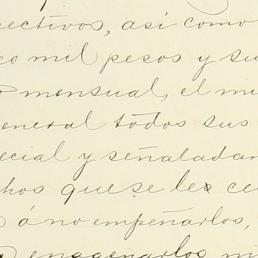 pectivos, así como
co mil pesos y su
o mensual, el mi
general todos sus
ecial y señaladam
chos que se les ce
á no empeñarlos,
enagenarlos ni